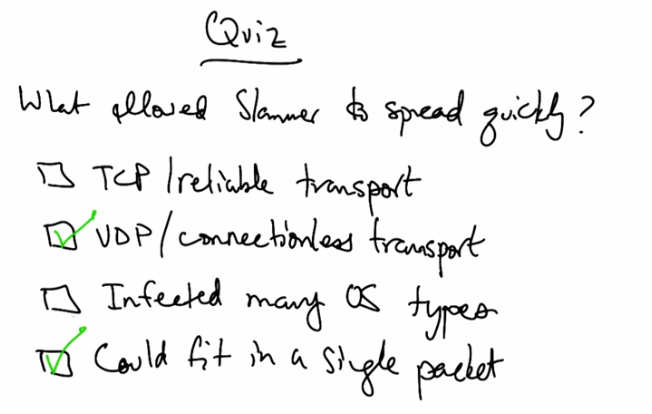 Quiz
What allowed Slammer to spread quickly?
TCP/reliable transport
UDP/connectionless transport
Infected many OS types
Could fit in a single packet